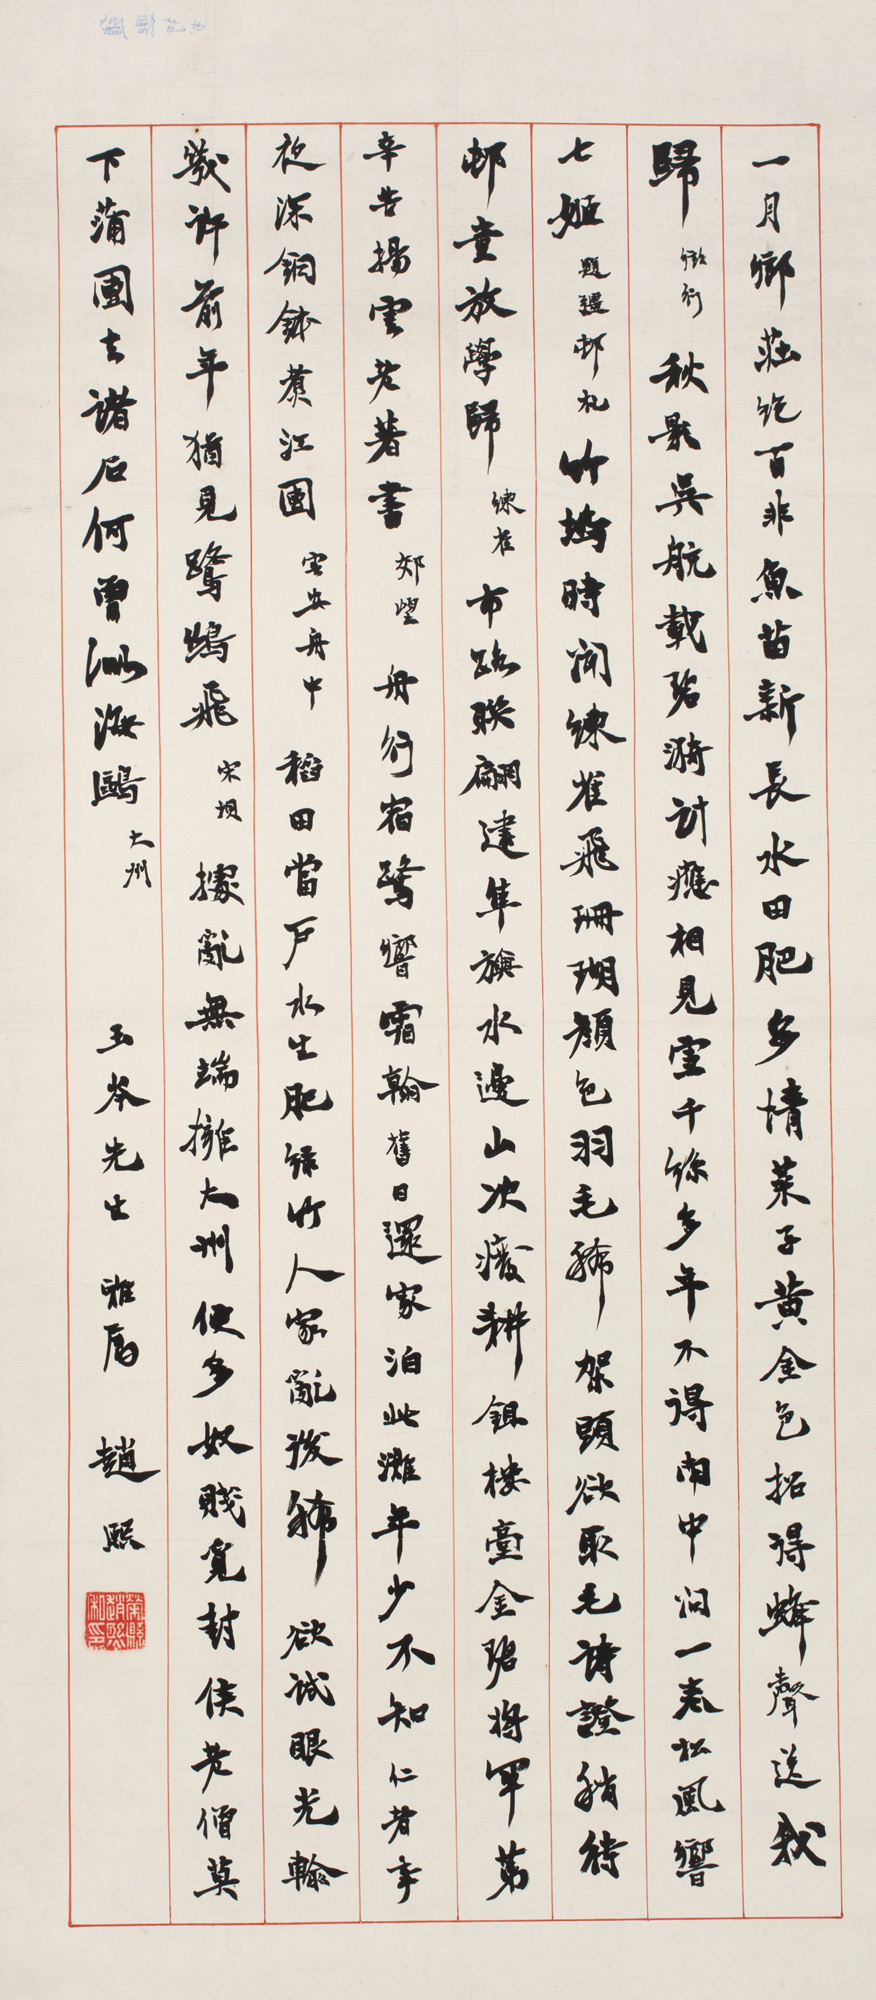 一月鄉莊飽百非魚苗新長水田肥多情菜子黃金色招得蜂聲送我
歸 行 秋影吳航載碧漪計應相見雪千絲多年不得閒中问一卷松風響
七姬 題還邨札 竹塢時聞練雀飛珊瑚顏色羽毛稀架頭欲取毛詩證稍待
邨童放學歸 練雀 布路聯翩建隼旗水邊山次廢耕鉏樓臺金碧將軍第
辛苦揚雲老著書 郊望 舟行宿鷺響霜翰舊日還家泊此灘年少不知仁者事
夜深銅鉢煮江團 安舟中 稻田當戶水生肥綠竹人家亂後稀欲試眼光輸
幾許前年猶見鷺鷀飛 宋坝 據亂無端擁大洲使多奴賤覓封侯老僧莫
下蒲團去諸石何曾海鷗 大洲 玉岑先生 雅屬 趙熙
榮縣趙熙私印